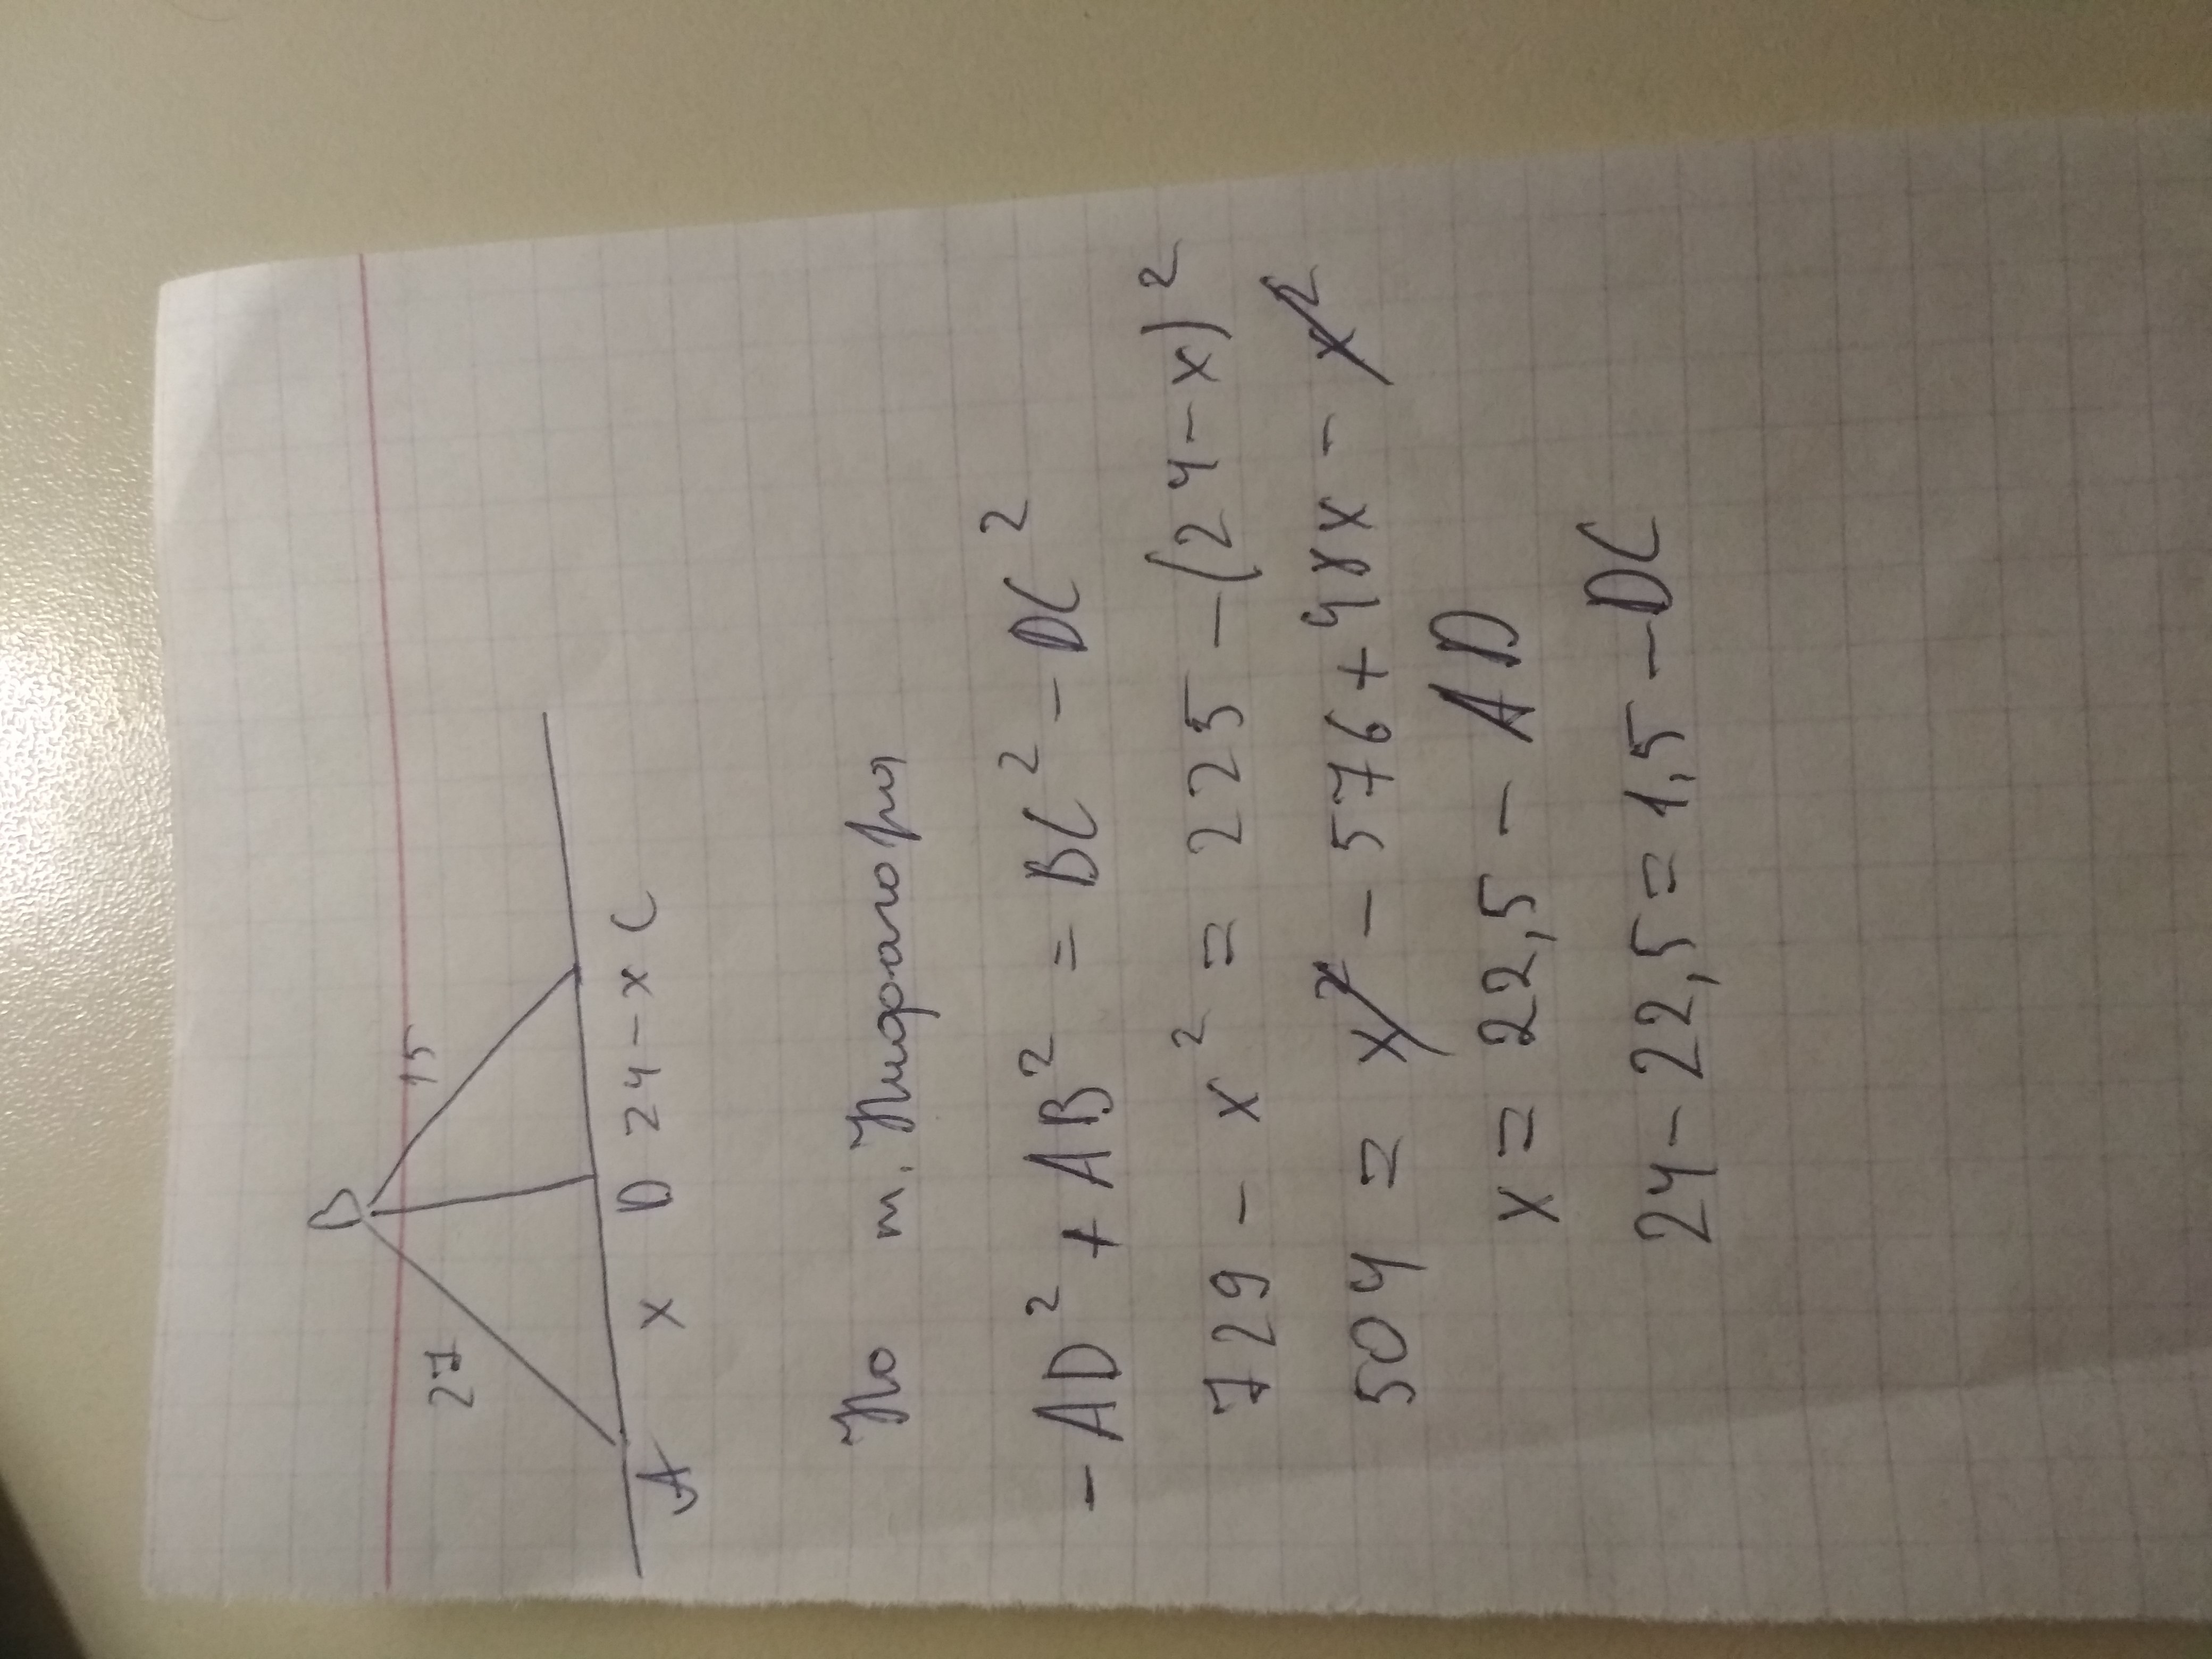 B
27 15
A x D 24-x C
По т. Пифагора
-AD² + AB² = BC² - DC²
729 - x² = 225 - (24-x)²
504 = x² - 576 + 48x - x²
x = 22,5 - AD
24 - 22,5 = 1,5 - DC